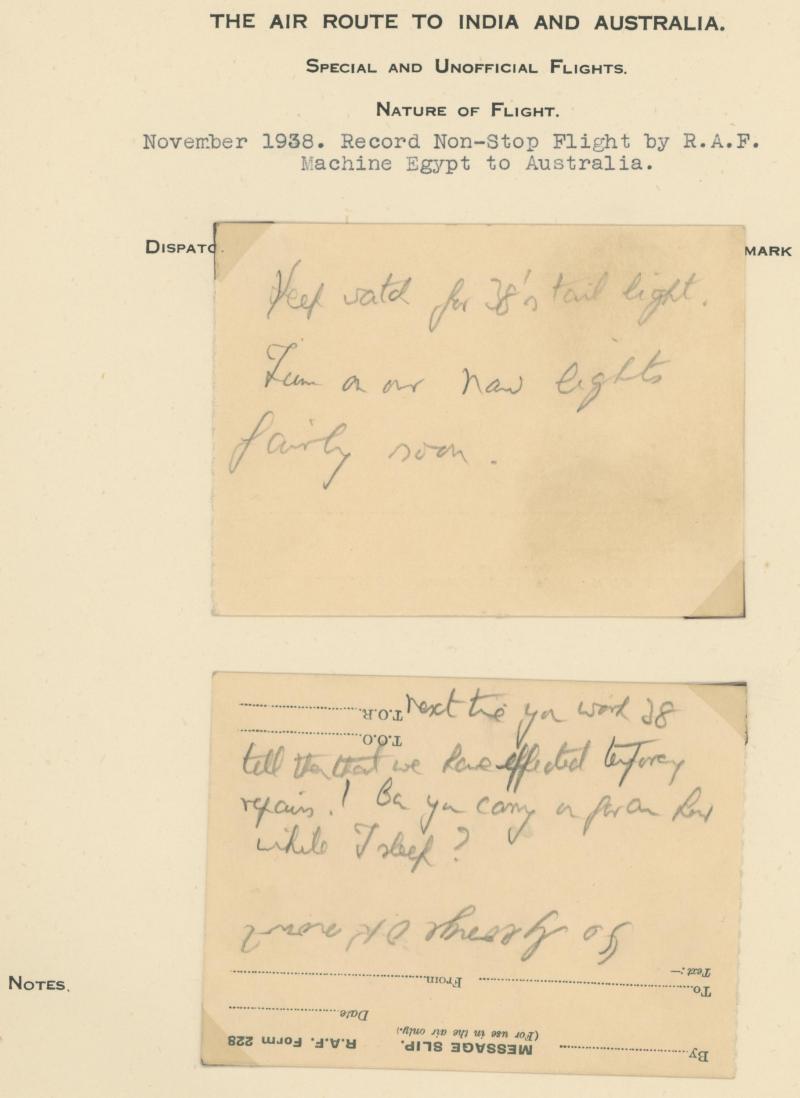 THE AIR ROUTE TO INDIA AND AUSTRALIA.
SPECIAL AND UNOFFICIAL FLIGHTS.
NATURE OF FLIGHT.
November 1938. Record Non-Stop Flight by R.A.F.
Machine Egypt to Australia.
DISPATC
MARK
Keep watch for 38's tail light.
Turn on our nav lights
fairly soon.
T.O.R. next time you work 38
T.O.O.
tell them that we have effected temporary
repairs! Can you carry on for an hour
while I sleep?
Go
Text:—
To From
Date
By MESSAGE SLIP. R.A.F. Form 228
(For use in the air only.)
NOTES.